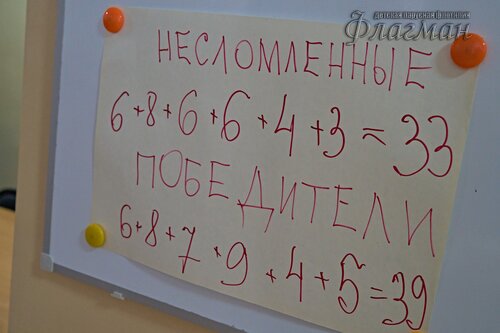 детская парусная флотилия
Флагман
НЕСЛОМЛЕННЫЕ
6+8+6+6+4+3=33
ПОБЕДИТЕЛИ
6+8+7+9+4+5=39